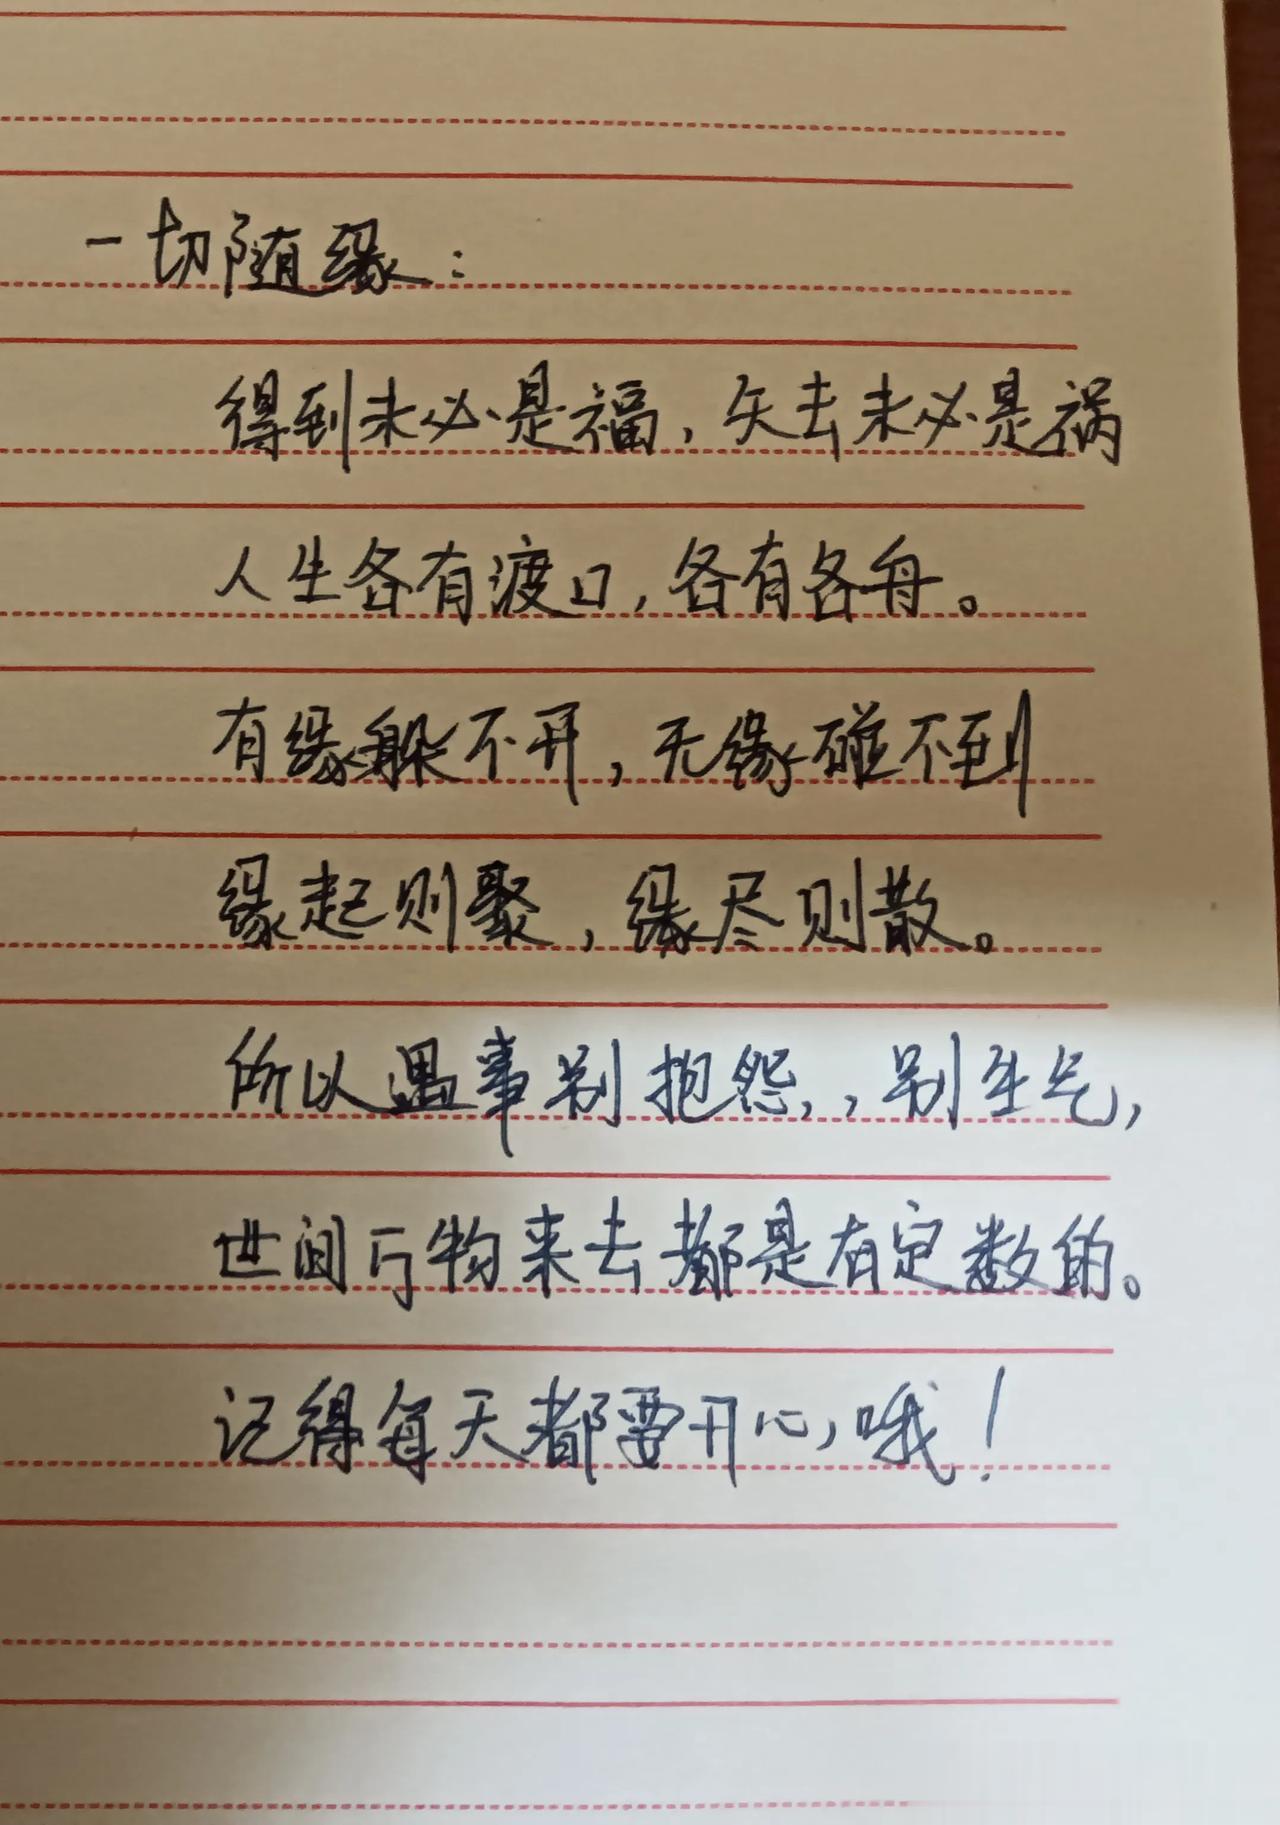 一切随缘：
得到未必是福，失去未必是祸
人生各有渡口，各有各舟。
有缘躲不开，无缘碰不到
缘起则聚，缘尽则散。
所以遇事别抱怨，，别生气，
世间万物来去都是有定数的。
记得每天都要开心，哦！